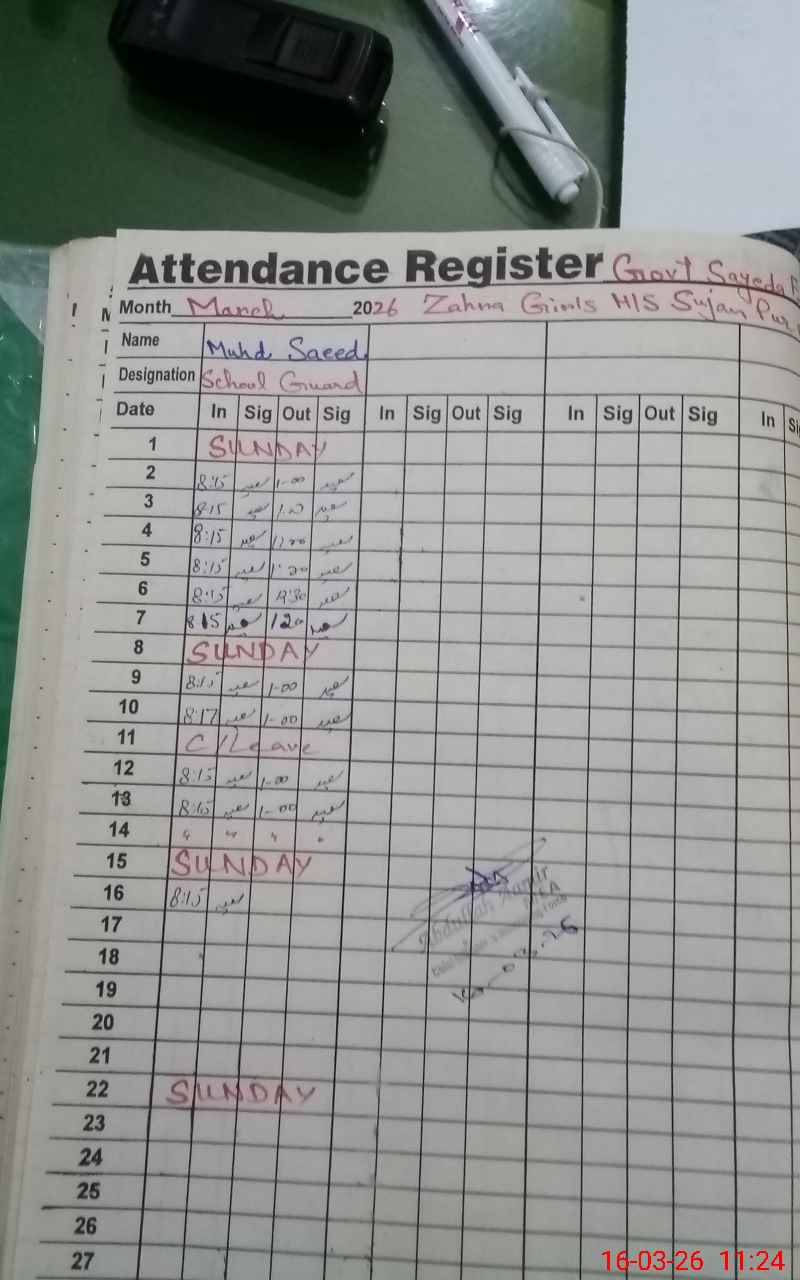 Attendance Register Govt Sayeda
Month March 2026 Zahra Girls H/S Sujan Pur
Name Muhd Saeed
Designation School Guard
Date In Sig Out Sig In Sig Out Sig In Sig Out Sig In
1 SUNDAY
2 8:15 سعید 1-00 سعید
3 8-15 سعید سعید
4 8:15 سعید سعید
5 8:15 سعید سعید
6 8:15 سعید سعید
7 8 15 سعید سعید
8 SUNDAY
9 8:15 سعید 1-00 سعید
10 8:17 سعید 1-00 سعید
11 C/Leave
12 8:15 سعید 1-00 سعید
13 8:15 سعید 1-00 سعید
14 " " " "
15 SUNDAY
16 8:15 سعید
Abdullah Aamir
17
18
19
20
21
22 SUNDAY
23
24
25
26
27
16-03-26 11:24